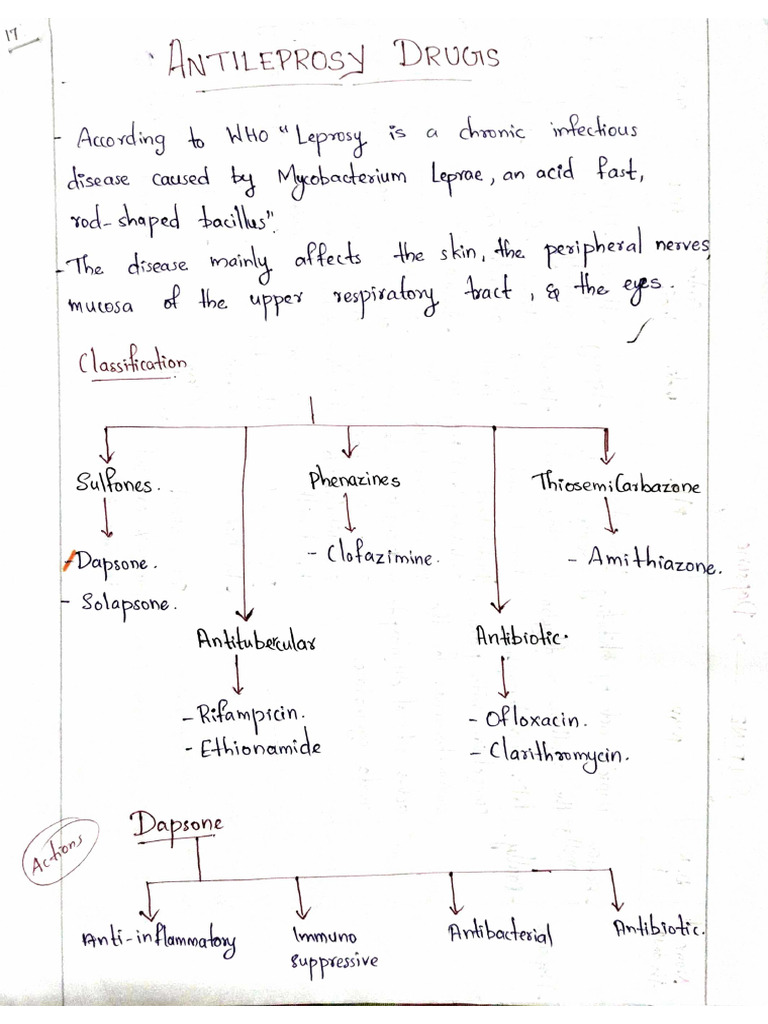 17
ANTILEPROSY DRUGS
- According to WHO "Leprosy is a chronic infectious
disease caused by Mycobacterium Leprae, an acid fast,
rod-shaped bacillus".
- The disease mainly affects the skin, the peripheral nerves,
mucosa of the upper respiratory tract, & the eyes.
Classification
Sulfones. Phenazines ThiosemiCarbazone
- Dapsone. - Clofazimine. - Amithiazone.
- Solapsone.
Antitubercular Antibiotic.
- Rifampicin. - Ofloxacin.
- Ethionamide - Clarithromycin.
Dapsone
Actions
Anti-inflammatory Immuno Antibacterial Antibiotic.
suppressive